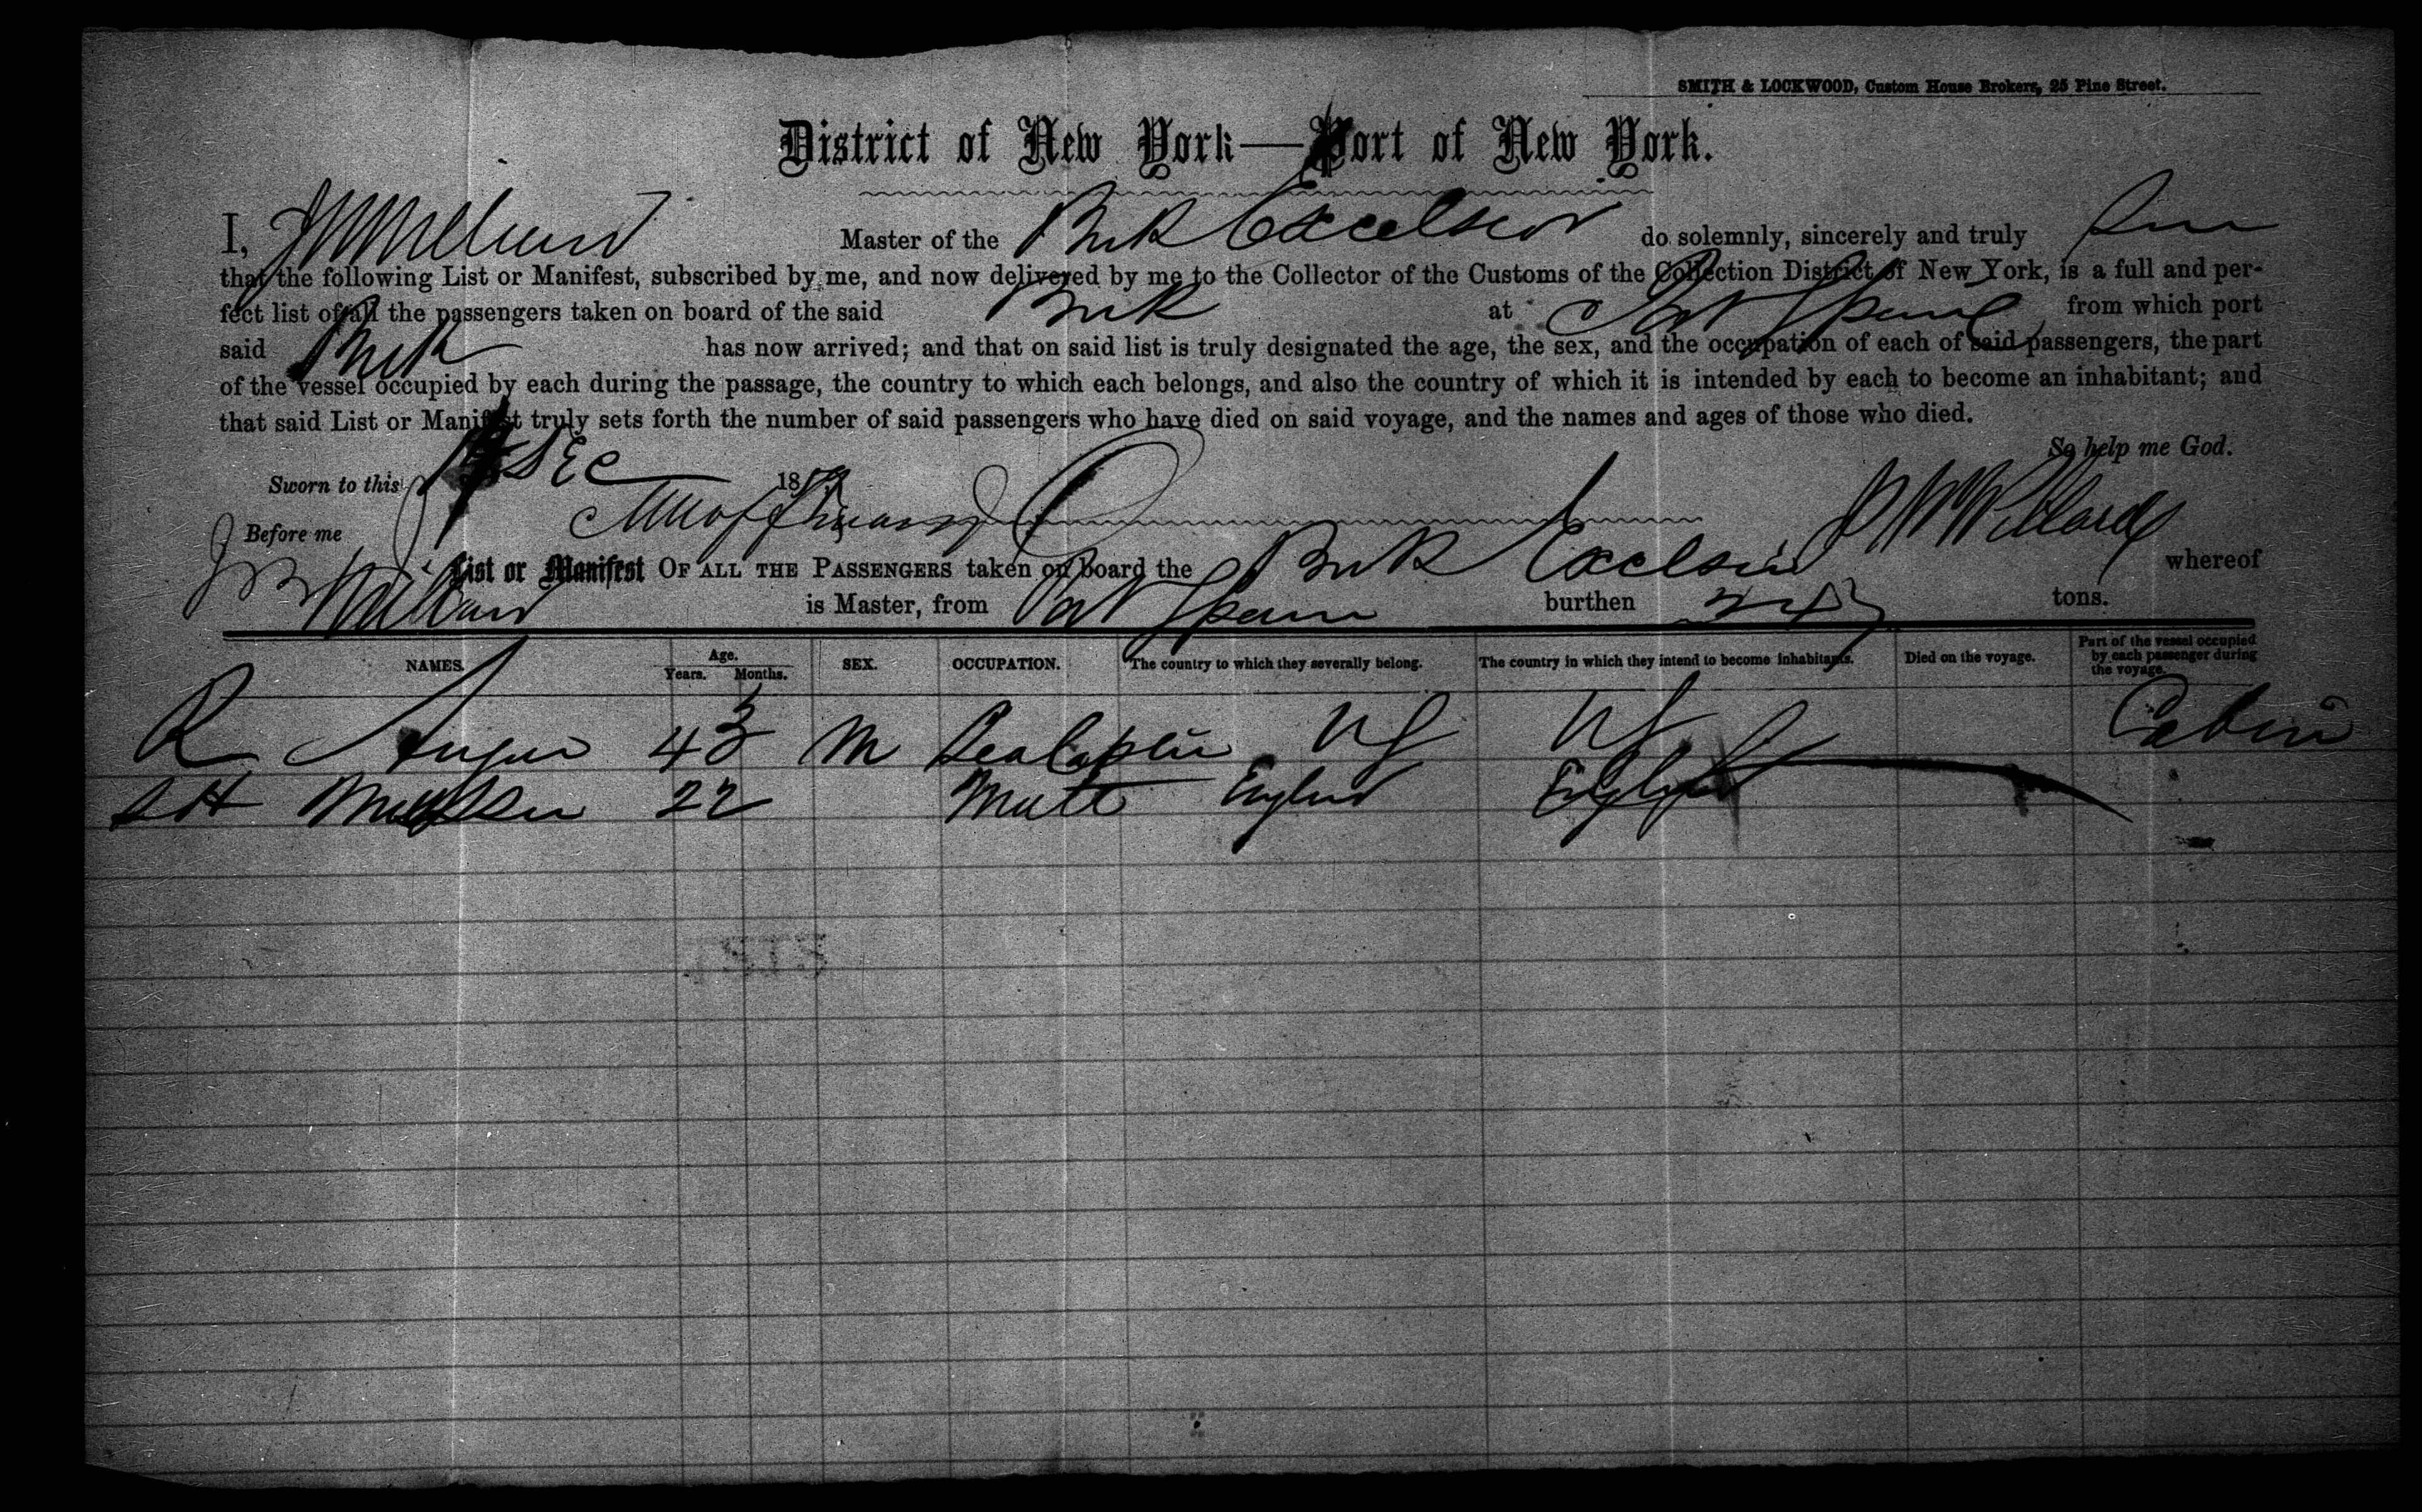 SMITH & LOCKWOOD, Custom House Brokers, 25 Pine Street.
District of New York—Port of New York.
I, Master of the Excelsior do solemnly, sincerely and truly
that the following List or Manifest, subscribed by me, and now delivered by me to the Collector of the Customs of the Collection District of New York, is a full and per-
fect list of all the passengers taken on board of the said at Port Spain from which port
said has now arrived; and that on said list is truly designated the age, the sex, and the occupation of each of said passengers, the part
of the vessel occupied by each during the passage, the country to which each belongs, and also the country of which it is intended by each to become an inhabitant; and
that said List or Manifest truly sets forth the number of said passengers who have died on said voyage, and the names and ages of those who died.
So help me God.
Sworn to this DEC 187
Before me
List or Manifest OF ALL THE PASSENGERS taken on board the Excelsior whereof
is Master, from Port Spain burthen tons.
NAMES. Age. Years. Months. SEX. OCCUPATION. The country to which they severally belong. The country in which they intend to become inhabitants. Died on the voyage. Part of the vessel occupied by each passenger during the voyage.
R 43 M US US Cabin
22 England England